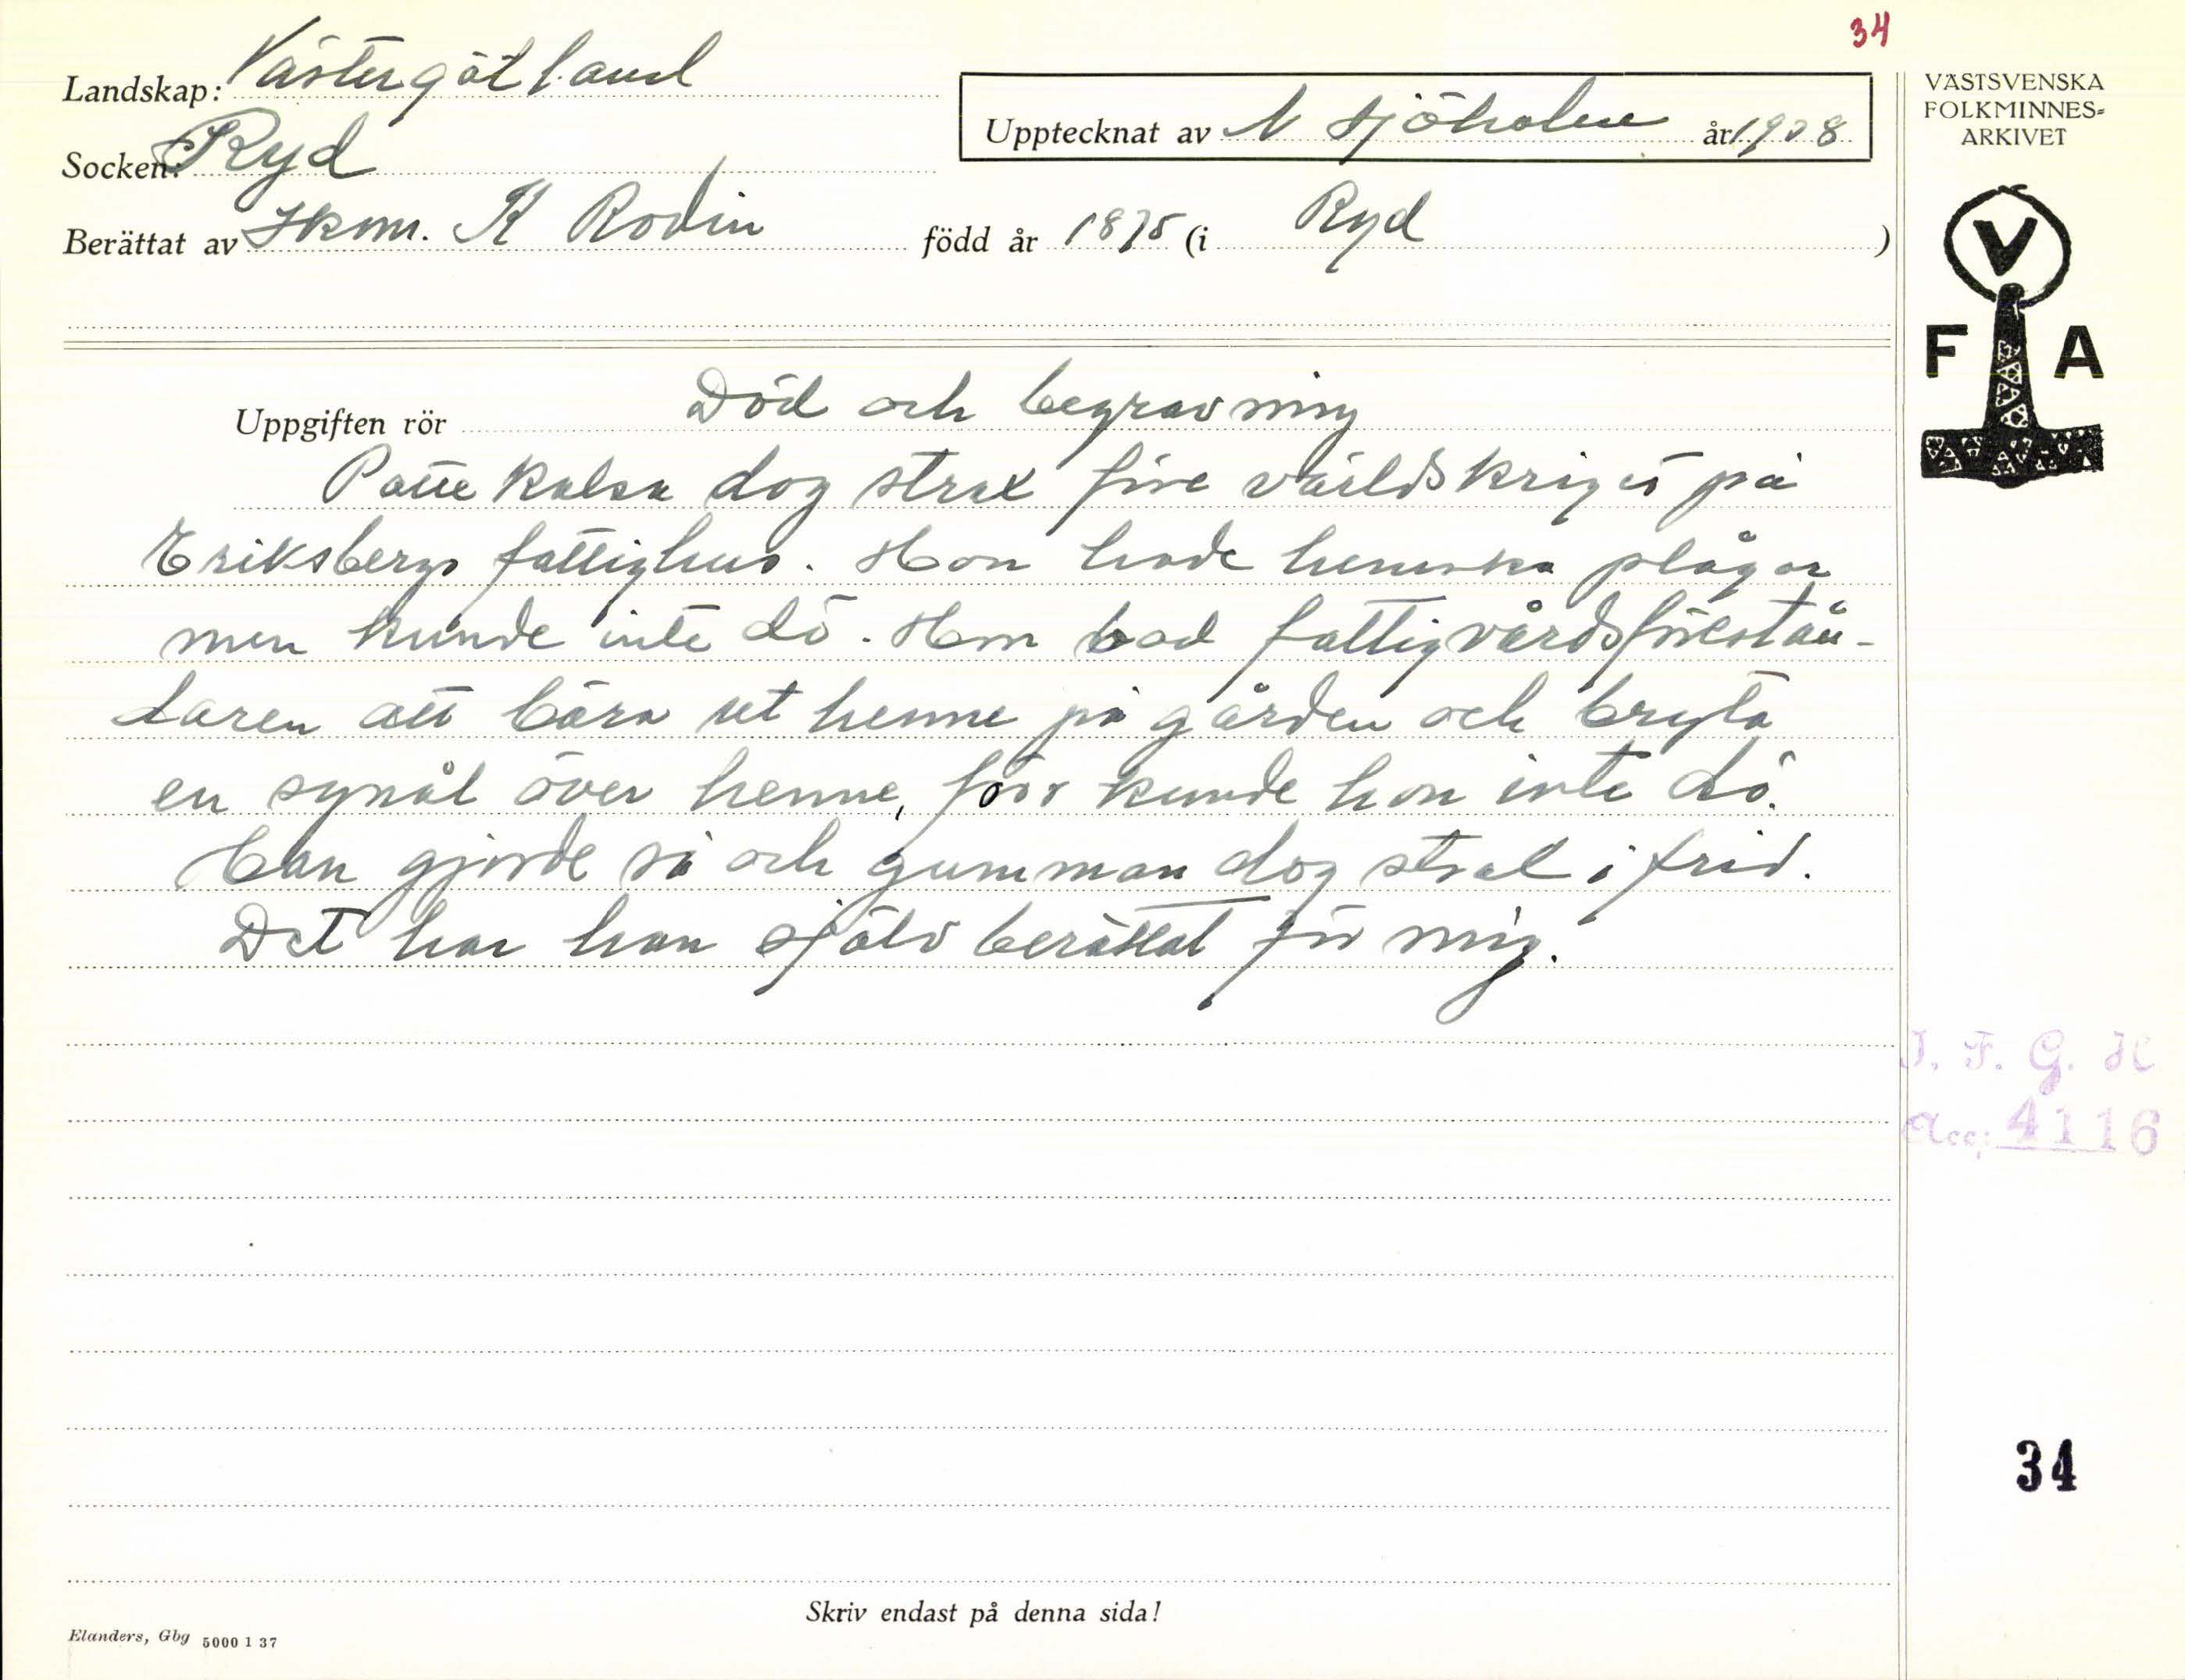 34
Landskap: Västergötland
Socken: Ryd
Upptecknat av N Sjöholm år 1938
Berättat av Hkm. K Rodin född år 1875 (i Ryd)
VÄSTSVENSKA
FOLKMINNES=
ARKIVET
V
F A
Uppgiften rör Död och begravning
dog strax före världskriget på
Eriksbergs fattighus. Hon hade hemska plågor
men kunde inte dö. Hon bad fattigvårdsförestån-
daren att bära ut henne på gården och bryta
en synål över henne, förr kunde hon inte dö.
Han gjorde så och gumman dog strax i frid.
Det har han själv berättat för mig.
I. F. G. H
Acc: 4116
34
Skriv endast på denna sida!
Elanders, Gbg 5000 1 37